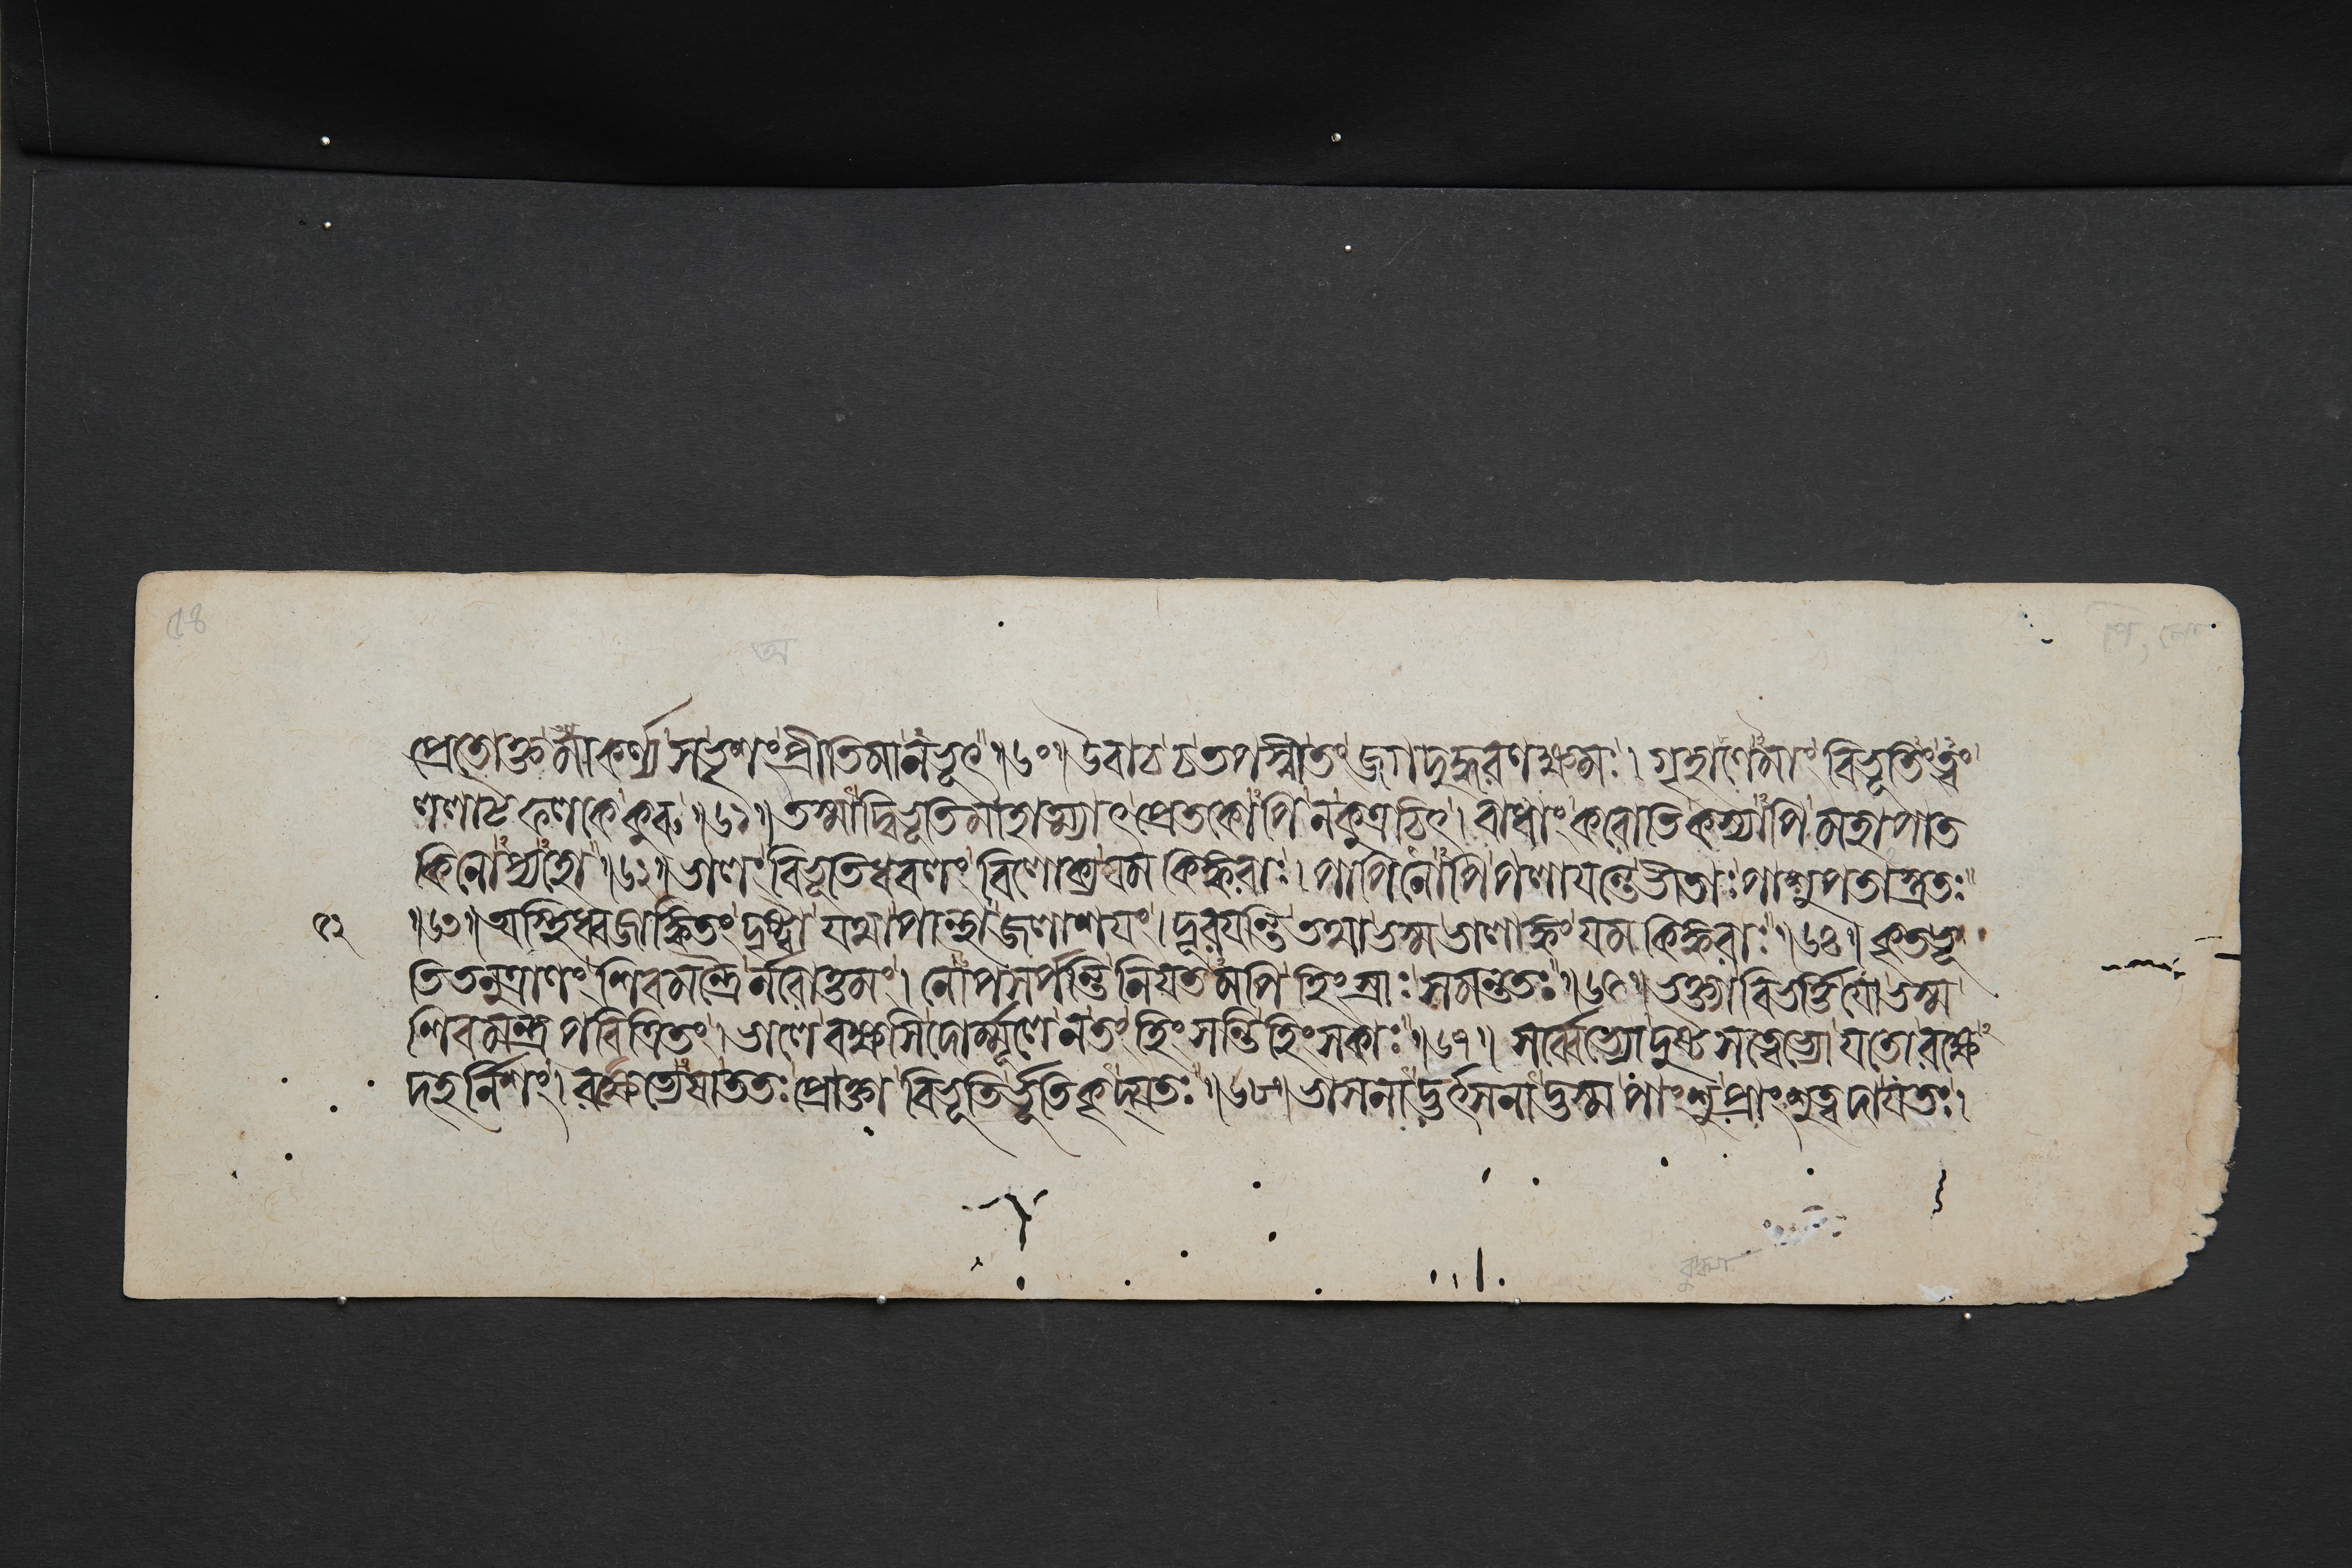 ৫৪
প্রেতোক্তমাকর্ণ্য স ভৃশং প্রীতিমানভূৎ॥৬০॥ উবাচ চ তপস্বী তং জগদুদ্ধরণক্ষমঃ। গৃহাণেমাং বিভূতিং ত্বং
ললাটফলকে কুরু॥৬১॥ তস্মাদ্বিভূতিমাহাত্ম্যাৎ প্রেতকোপি ন কুত্রচিৎ। বাধাং করোতি কস্যাপি মহাপাত
কিনোপ্যহো॥৬২॥ ভালং বিভূতিধবলং বিলোক্য যমকিঙ্করাঃ। পাপিনোপি পলাযন্তে ভীতাঃ পাশুপতাস্ত্রতঃ
৫২ ॥৬৩॥ অস্থিধ্বজাঙ্কিতং দৃষ্ট্বা যথা পান্থা জলাশযং। দূরং যন্তি তথা ভস্মভালাঙ্কং যমকিঙ্করাঃ॥৬৪॥ কৃতভূ
তিতনুত্রাণং শিবমন্ত্রৈর্নরোত্তমং। নোপসর্পন্তি নিযতমপি হিংস্রাঃ সমন্ততঃ॥৬৫॥ ভক্ত্যা বিভর্ত্তি যো ভস্ম
শিবমন্ত্রপবিত্রিতং। ভালে বক্ষসি দোর্ম্মূলে ন তং হিংসন্তি হিংসকাঃ॥৬৭॥ সর্ব্বেভ্যো দুষ্টসত্ত্বেভ্যো যতো রক্ষে
দহর্নিশং। রক্ষেত্যেষা ততঃ প্রোক্তা বিভূতির্ভূতিকৃদ্যতঃ॥৬৮॥ ভাসনাদ্ভর্ৎসনাদ্ভস্ম পাংশুপ্রাংশুত্বদাযতঃ।